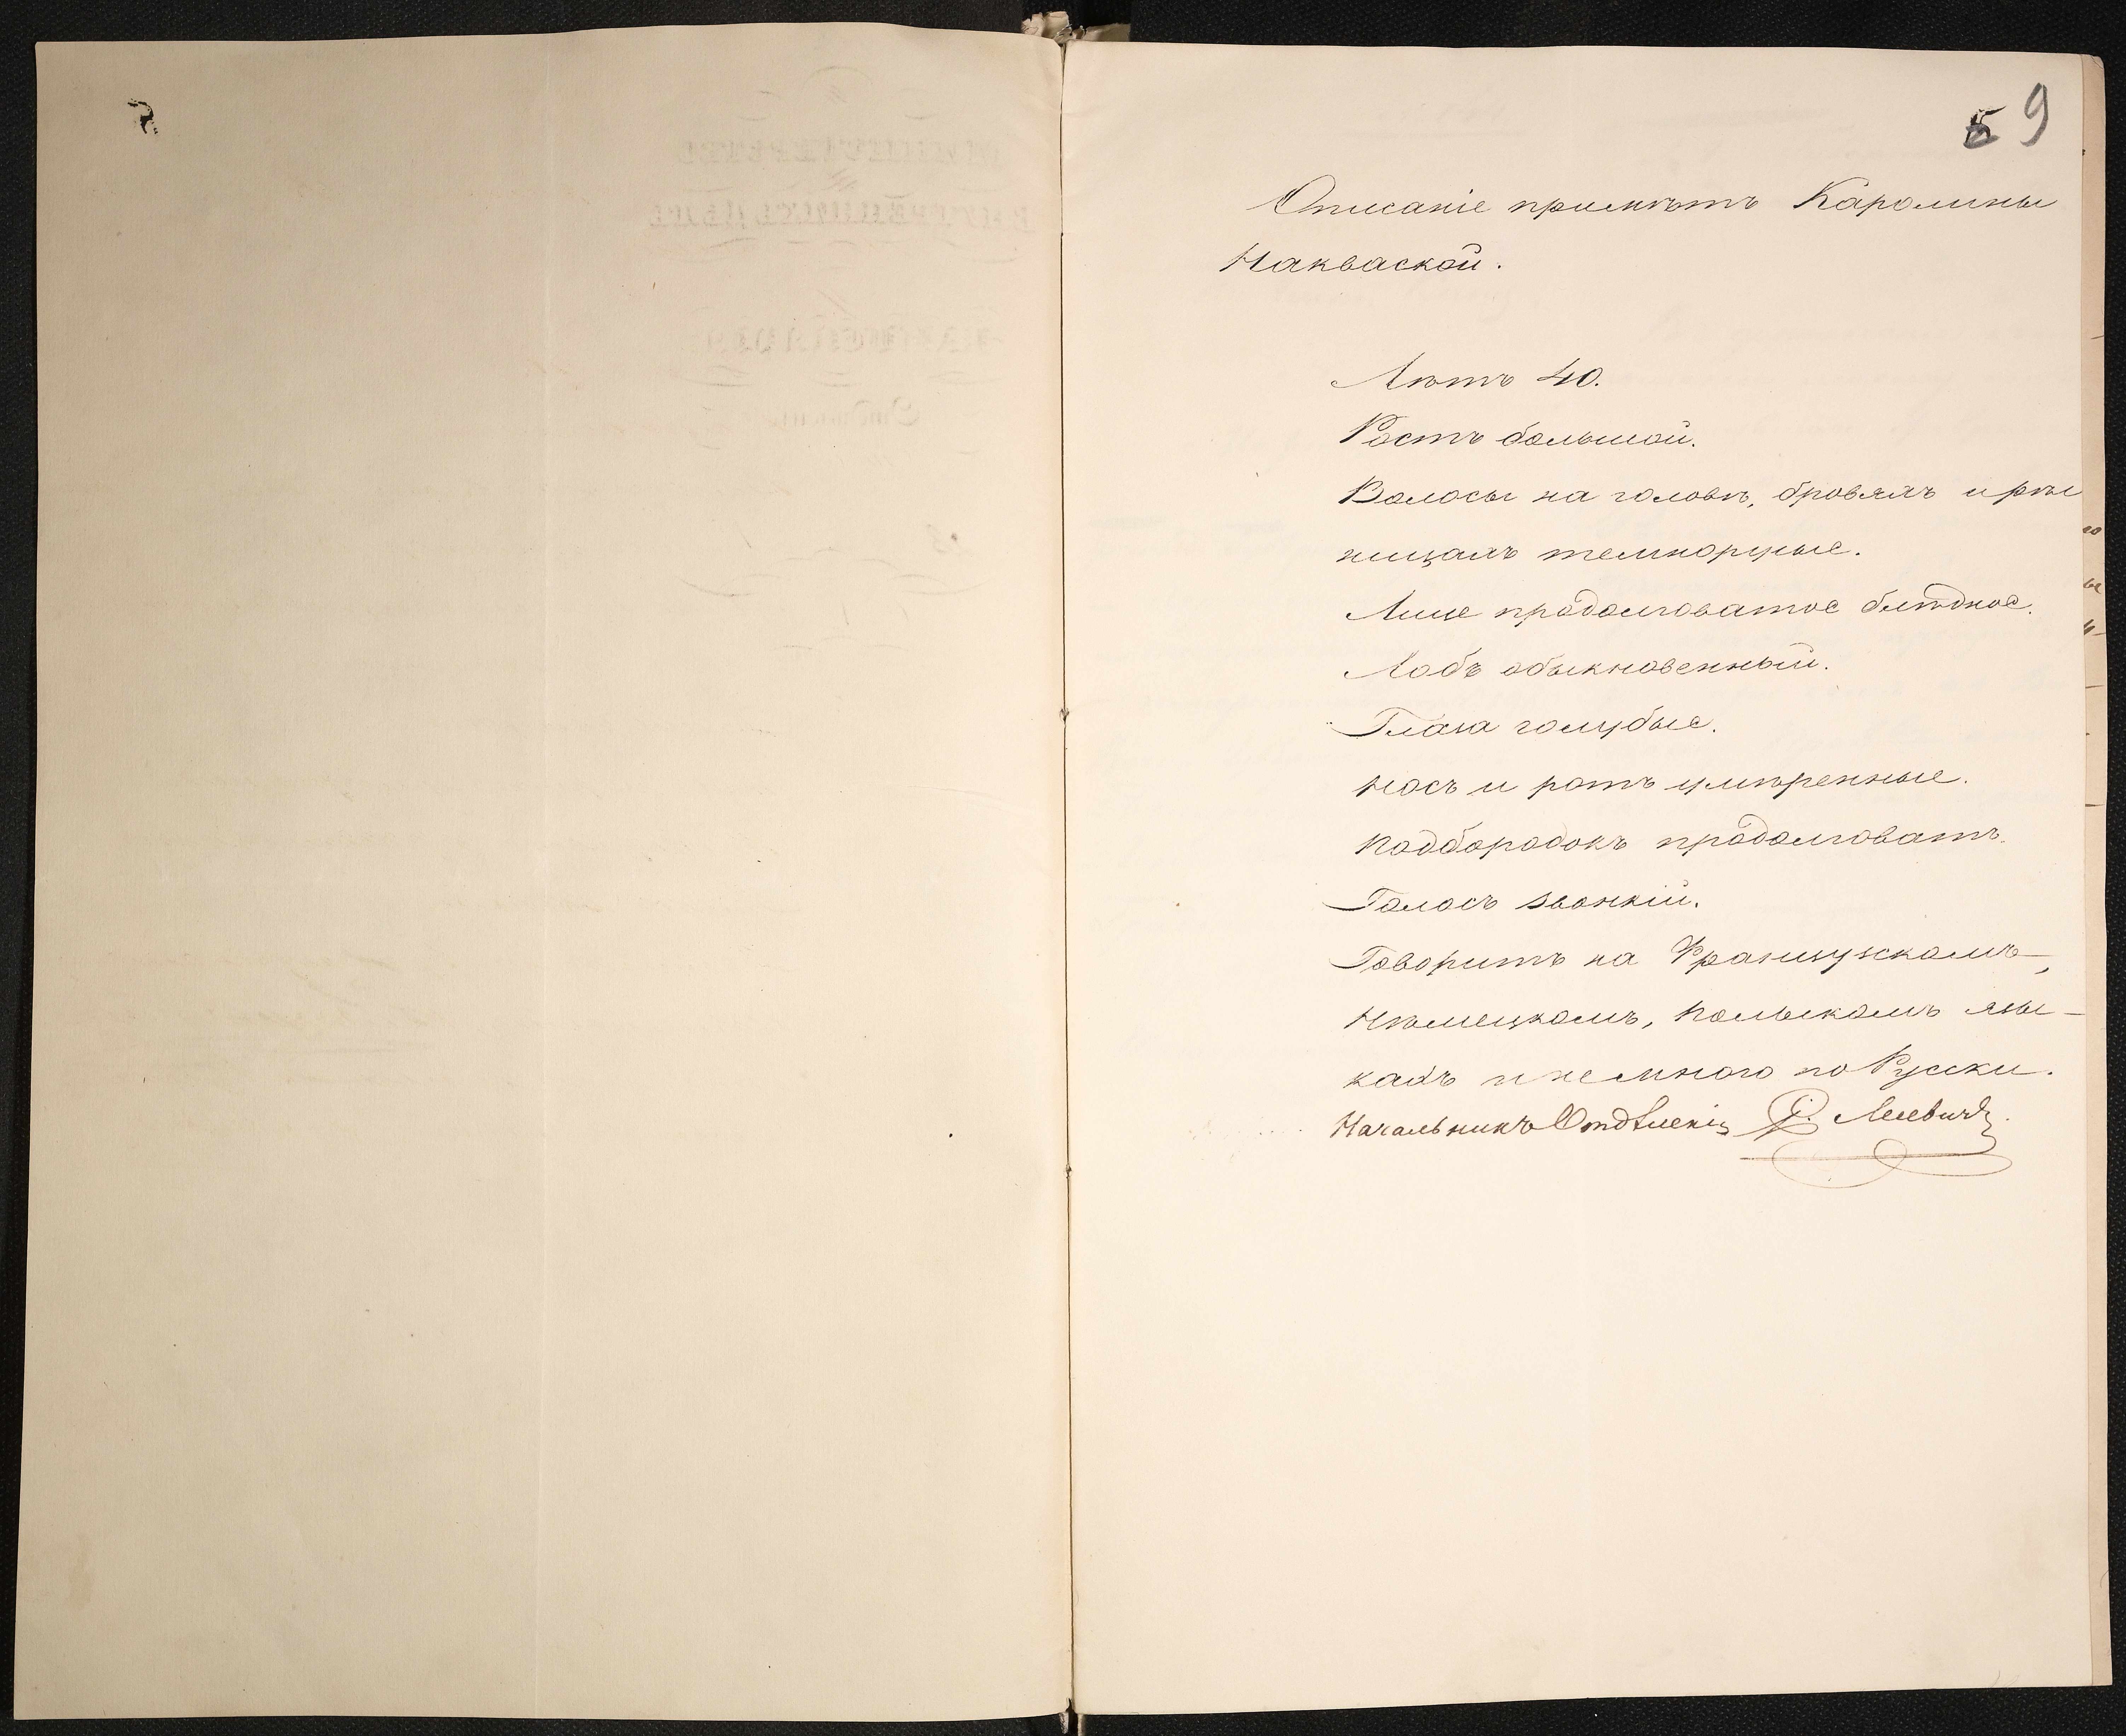 9
Описаніе примѣтъ Каролины
Накваской.
Лѣтъ 40.
Ростъ большой.
Волосы на головѣ, бровяхъ и рѣс
ницахъ темнорусые.
Лице продолговатое блѣдное.
Лобъ обыкновенный.
Глаза голубые.
Носъ и ротъ умѣренные.
Подбородокъ продолговатъ.
Голосъ звонкій.
Говоритъ на Французскомъ,
Нѣмецкомъ, Польскомъ язы-
кахъ и немного по Русски.
Начальникъ Отдѣленія